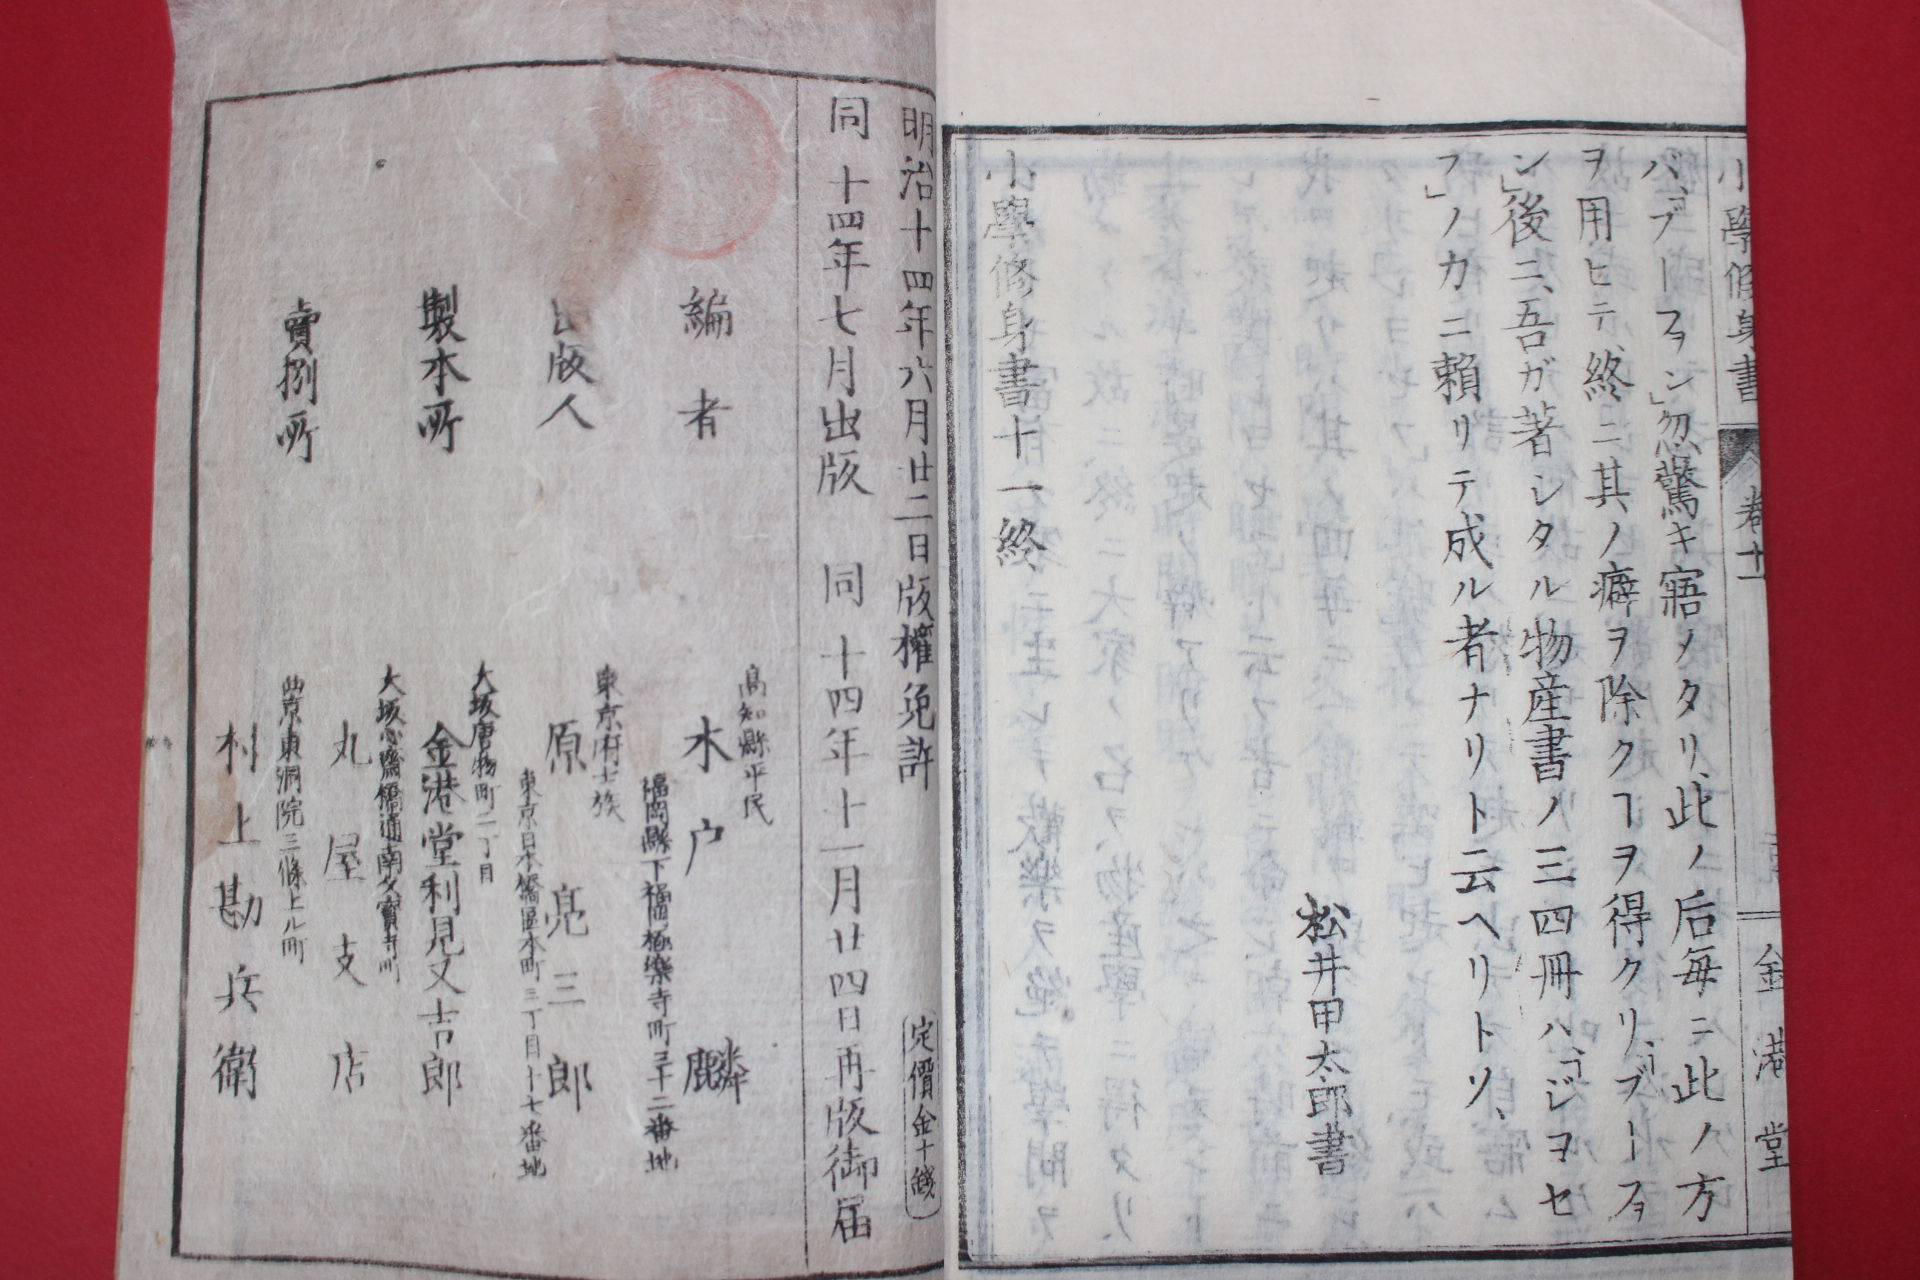 小學修身書
卷十一
金港堂
バ、ブーフヲン」忽驚キ寤メタリ、此ノ后毎ニ此ノ方
ヲ用ヒテ、終ニ其ノ癖ヲ除クヿヲ得クリ、ブーフヲ
ン」後ニ、吾ガ著シタル物産書ノ三四冊ハ、ジヨセ
フ」ノカニ頼リテ成ル者ナリト云ヘリトソ、
松井甲太郎書
小學修身書十一終
明治十四年六月廿二日版權免許
定價金十錢
同十四年七月出版 同十四年十一月廿四日再版御届
高知縣平民
編者 水户麟
福岡縣下福岡極樂寺町三十二番地
東京府士族
出版人 原亮三郎
東京日本橋區本町三丁目十七番地
大坂唐物町二丁目
製本所 金港堂利見又吉郎
大坂心齋橋通南久寶寺町
賣捌所 丸屋支店
西京東洞院三條上ル町
村上勘兵衛